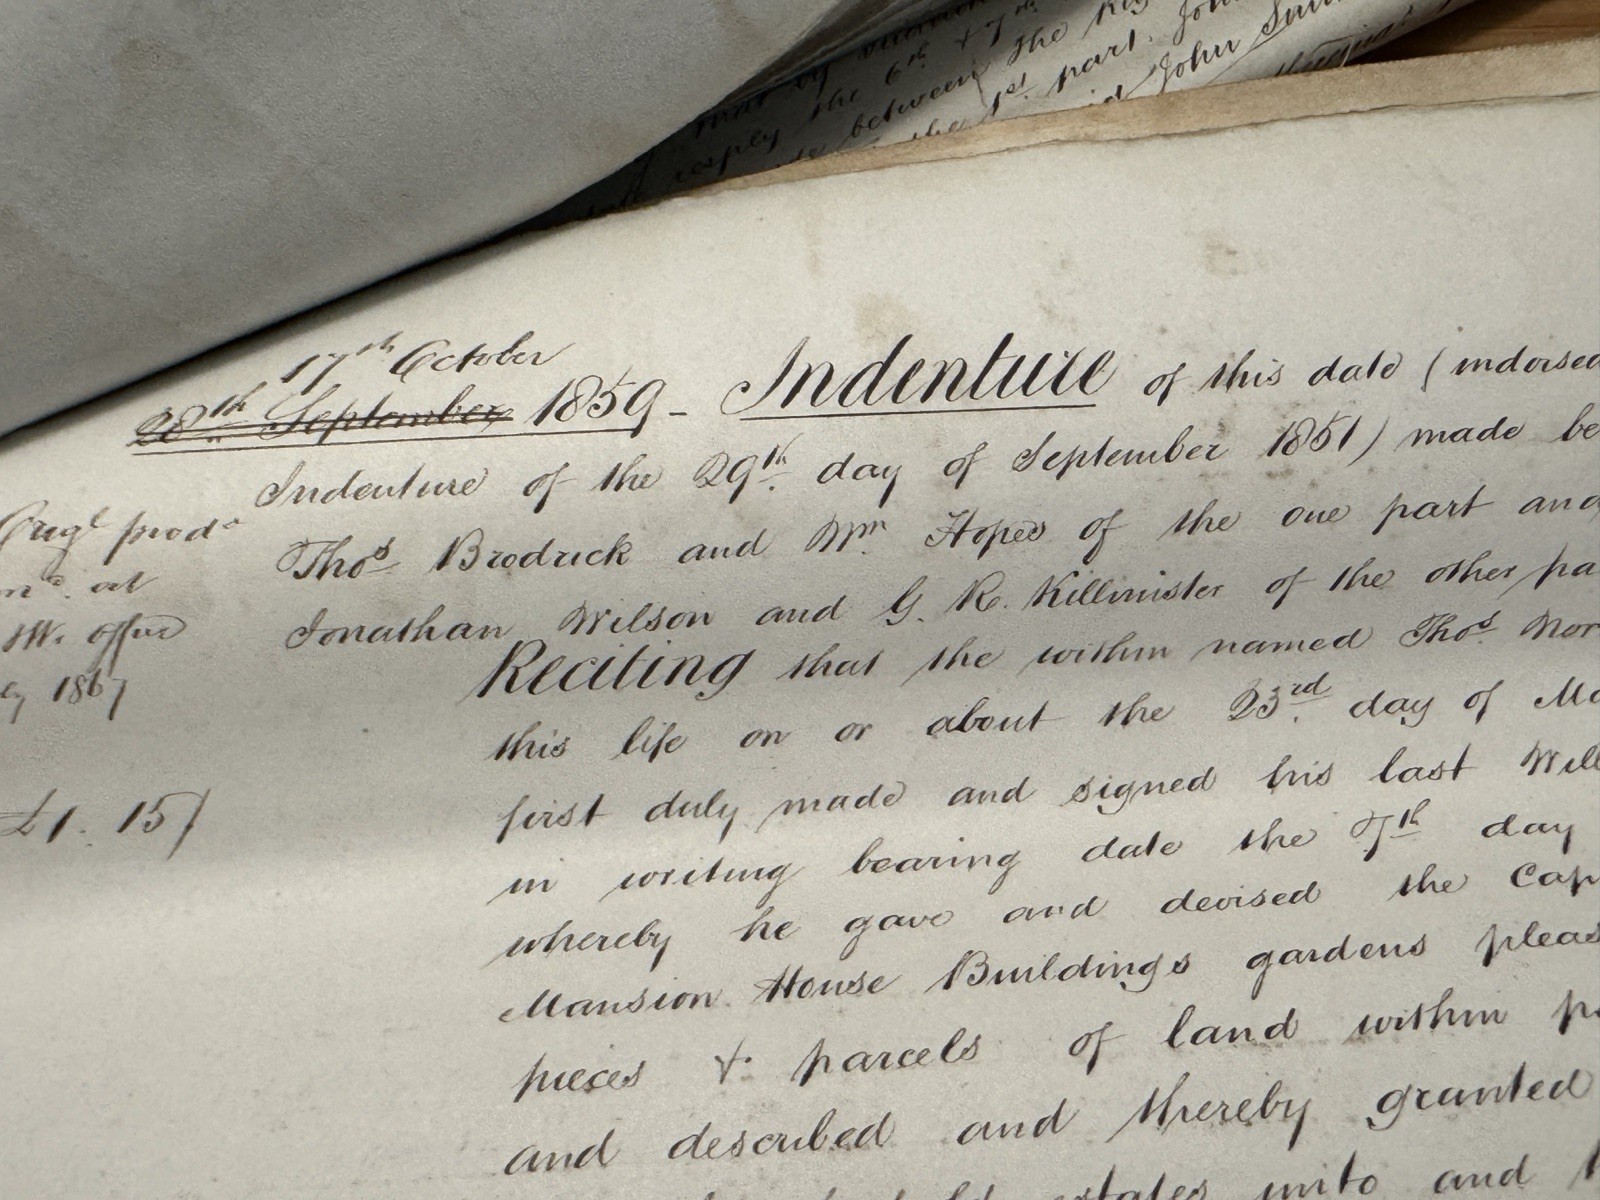 6th & 7th
resply the
between the
the 1st part. Joh
John Smi
17th October
28th September 1859 - Indenture of this date (indorsed
Indenture of the 29th day of September 1851) made be
Thos Brodrick and Wm Hopes of the one part and
Jonathan Wilson and G. R. Killmister of the other pa
Reciting that the within named Thos Nor
this life on or about the 23rd day of Ma
first duly made and signed his last Will
in writing bearing date the 7th day
whereby he gave and devised the Cap
Mansion House Buildings gardens pleas
pieces & parcels of land within pa
and described and thereby granted
estates unto and
Origl prod
at
W. office
1867
£1. 15/